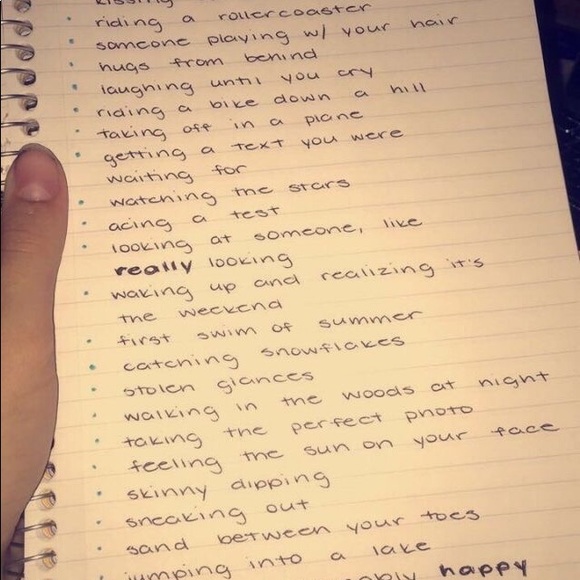 kissing
• riding a rollercoaster
• someone playing w/ your hair
• hugs from behind
• laughing until you cry
• riding a bike down a hill
• taking off in a plane
• getting a text you were
waiting for
• watching the stars
• acing a test
• looking at someone, like
really looking
• waking up and realizing it's
the weekend
• first swim of summer
• catching snowflakes
• stolen glances
• walking in the woods at night
• taking the perfect photo
• feeling the sun on your face
• skinny dipping
• sneaking out
• sand between your toes
• jumping into a lake
happy